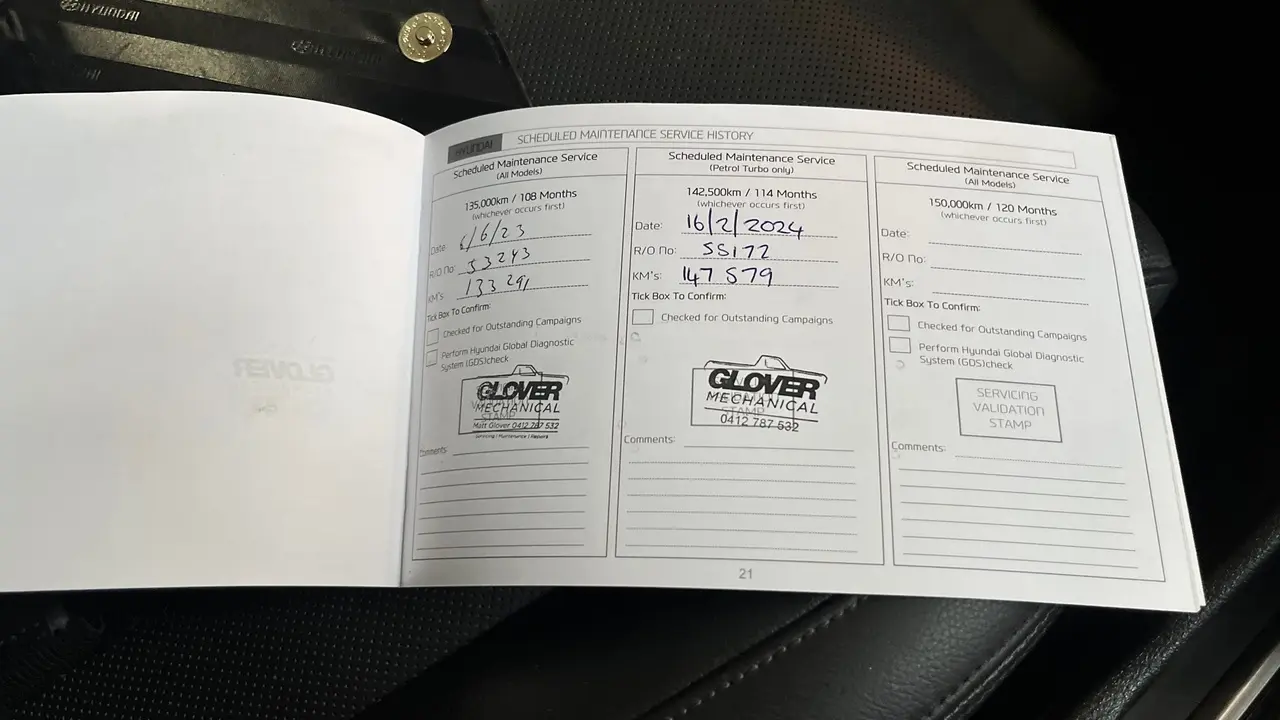 HYUNDAI
HYUNDAI
HI
HYUNDAI
SCHEDULED MAINTENANCE SERVICE HISTORY
Scheduled Maintenance Service
(All Models)
135,000km / 108 Months
(whichever occurs first)
Date: 6/6/23
R/O No: 53243
KM's: 133 291
Tick Box To Confirm:
Checked for Outstanding Campaigns
Perform Hyundai Global Diagnostic
System (GDS)check
VALIDATION
STAMP
GLOVER
MECHANICAL
Matt Glover 0412 787 532
Servicing | Maintenance | Repairs
Comments:
Scheduled Maintenance Service
(Petrol Turbo only)
142,500km / 114 Months
(whichever occurs first)
Date: 16/2/2024
R/O No: 55172
KM's: 147 579
Tick Box To Confirm:
Checked for Outstanding Campaigns
GLOVER
MECHANICAL
STAMP
0412 787 532
Comments:
Scheduled Maintenance Service
(All Models)
150,000km / 120 Months
(whichever occurs first)
Date:
R/O No:
KM's:
Tick Box To Confirm:
Checked for Outstanding Campaigns
Perform Hyundai Global Diagnostic
System (GDS)check
SERVICING
VALIDATION
STAMP
Comments:
21